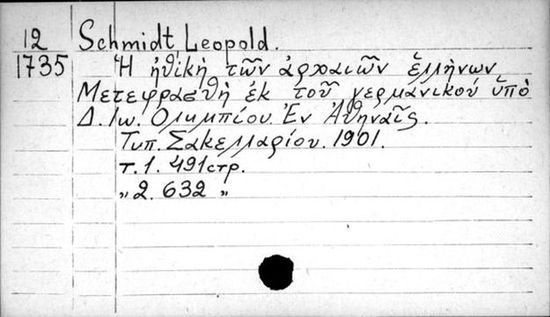 12 Schmidt, Leopold.
1735 Ἡ ἠθική τῶν ἀρχαιῶν ἑλλήνων
Μετεφρασθὴ ἐκ τοῦ γερμάνικού ὑπὸ
Δ. Ιω. Ολυμπίου. Ἐν Ἀθήναῖς.
Τυπ. Σακελλαρίου. 1901.
τ. 1. 491 стр.
„ 2. 632 „